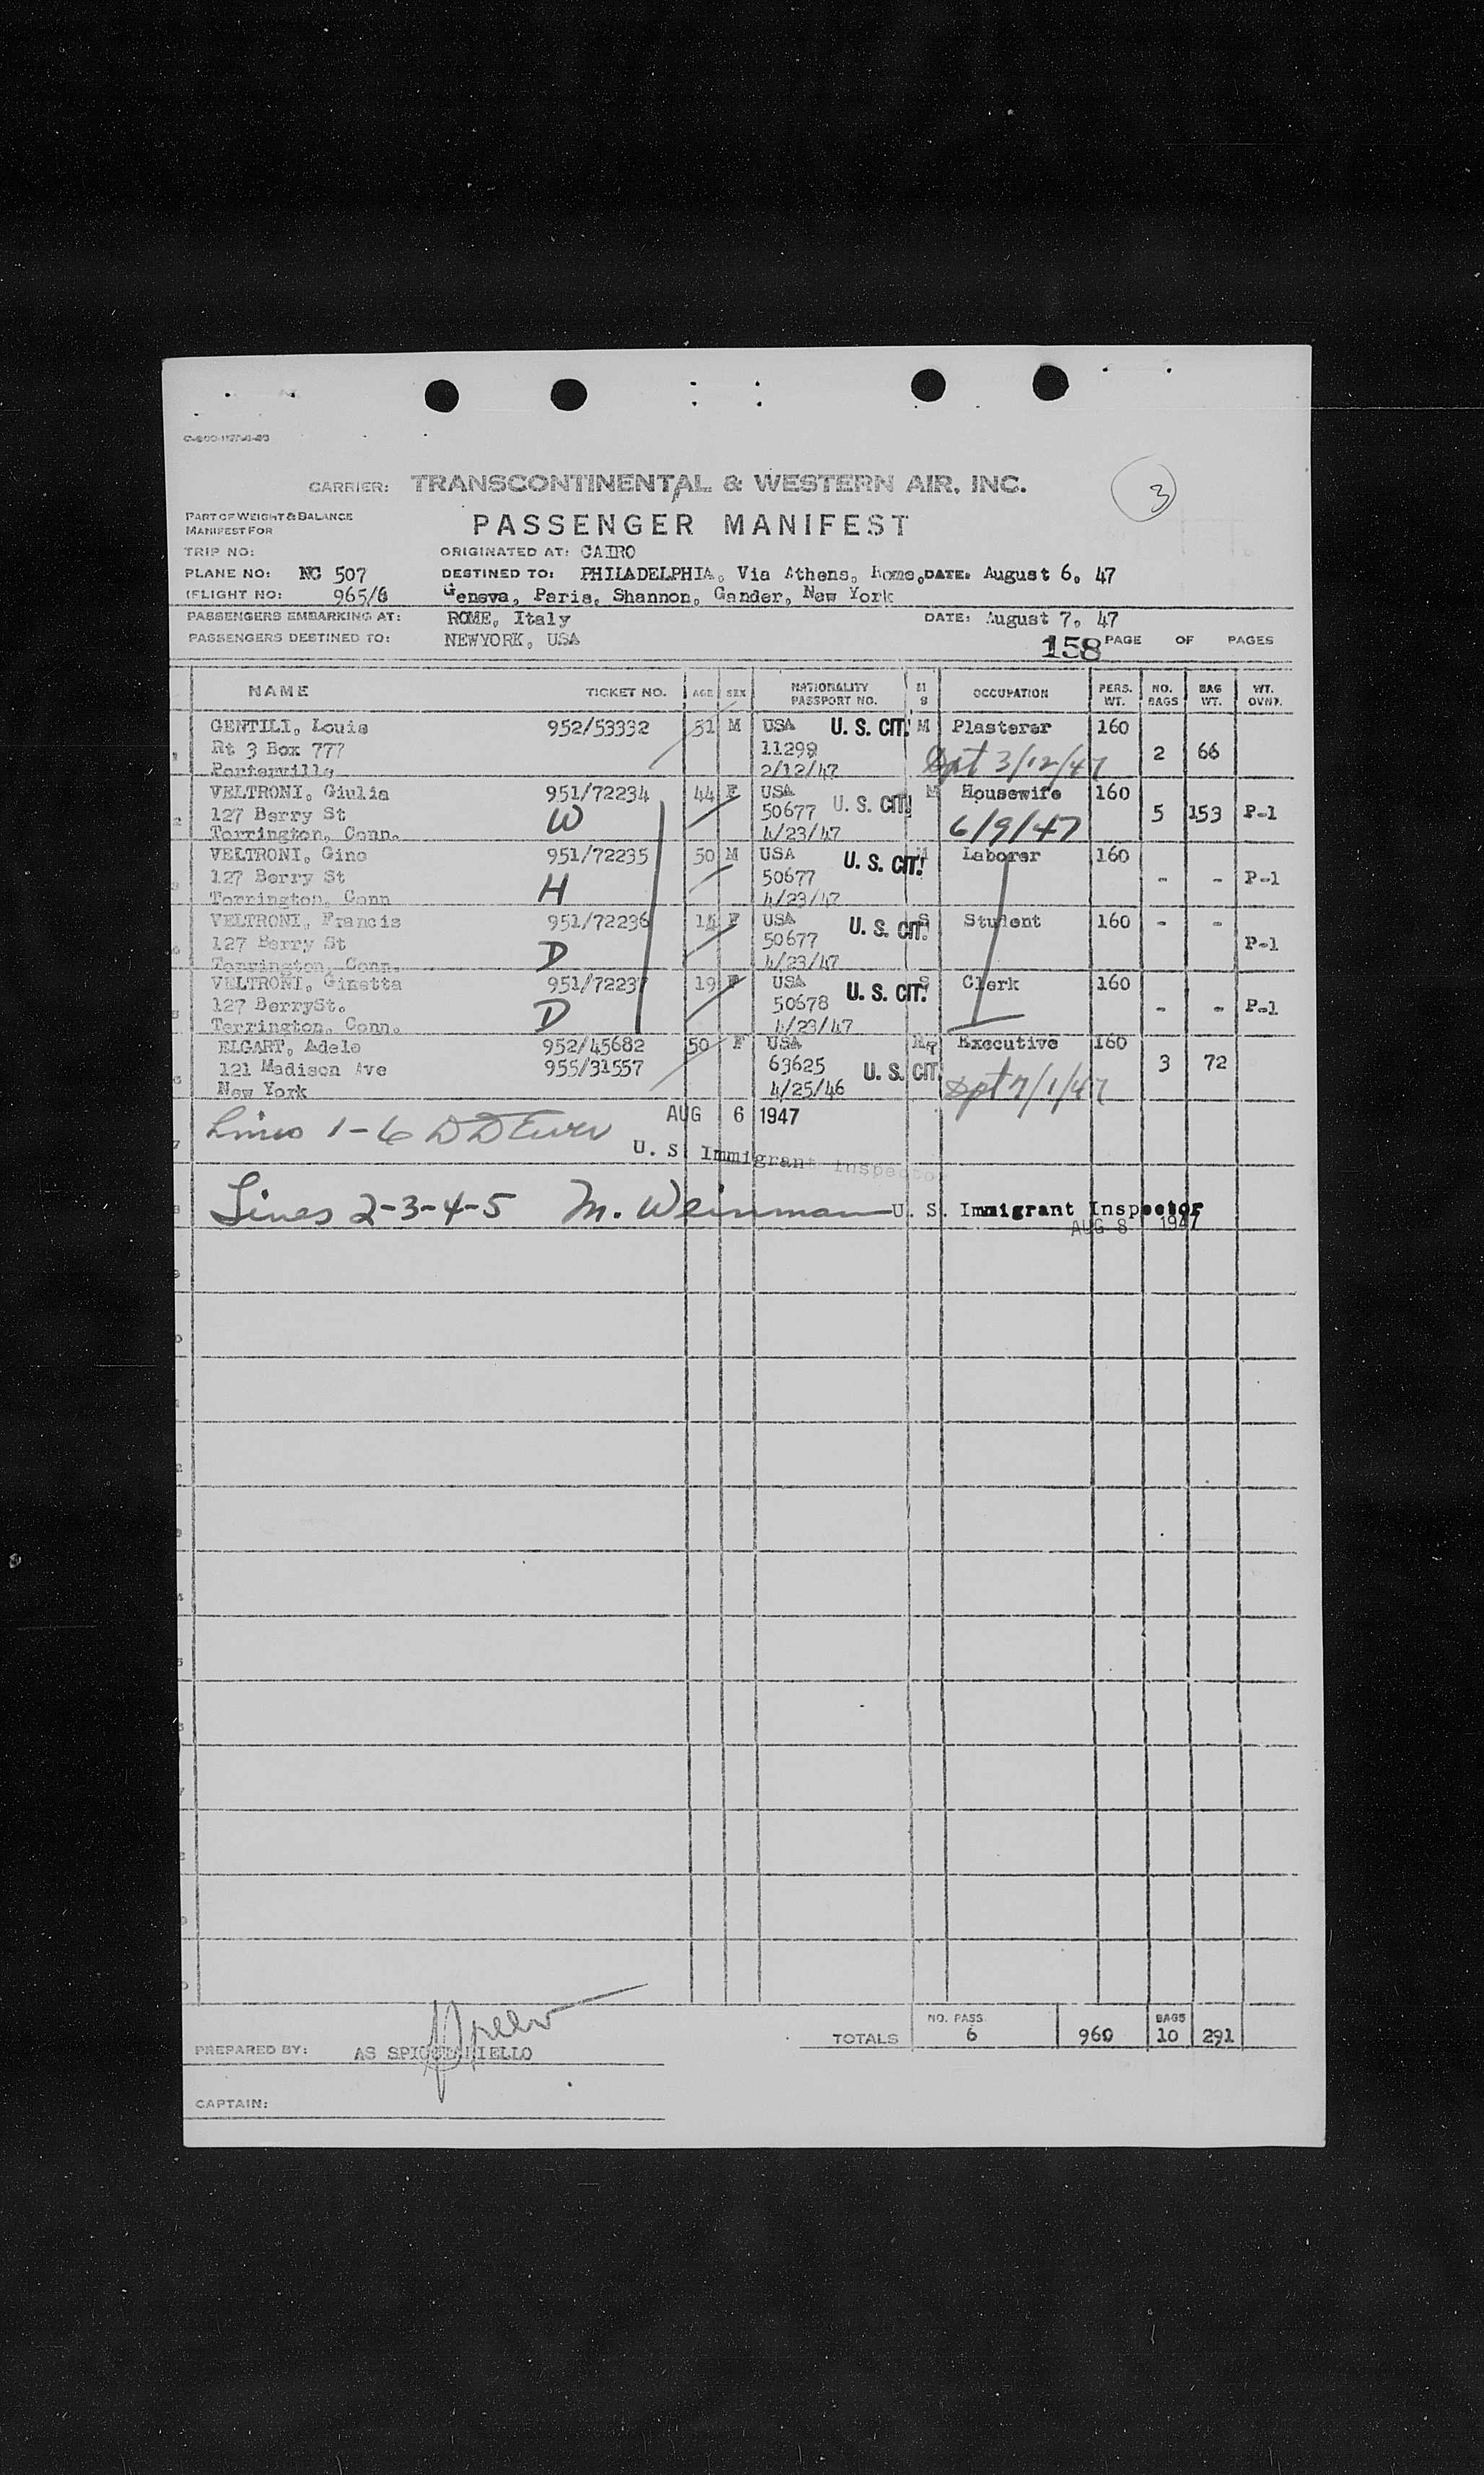 CARRIER: TRANSCONTINENTAL & WESTERN AIR, INC.
3
PART OF WEIGHT & BALANCE
MANIFEST FOR
PASSENGER MANIFEST
TRIP NO:
ORIGINATED AT: CAIRO
PLANE NO: NC 507
DESTINED TO: PHILADELPHIA, Via Athens, Rome, DATE: August 6, 47
(FLIGHT NO: 965/6
Geneva, Paris, Shannon, Gander, New York
PASSENGERS EMBARKING AT: ROME, Italy DATE: August 7, 47
PASSENGERS DESTINED TO: NEWYORK, USA
158 PAGE OF PAGES
NAME TICKET NO. AGE SEX NATIONALITY PASSPORT NO. M S OCCUPATION PERS. WT. NO. BAGS BAG WT. WT. OVND.
GENTILI, Louis 952/53332 51 M USA U. S. CIT. M Plasterer 160
Rt 3 Box 777 11299 2 66
Porterville 2/12/47 Dpt 3/12/47
VELTRONI, Giulia 951/72234 44 F USA U. S. CIT. M Housewife 160
127 Berry St W 50677 5 153 P-1
Torrington, Conn. 4/23/47 6/9/47
VELTRONI, Gino 951/72235 50 M USA U. S. CIT. M Laborer 160
127 Berry St H 50677 - - P-1
Torrington, Conn 4/23/47
VELTRONI, Francis 951/72236 F USA U. S. CIT. S Student 160 - -
127 Berry St D 50677 P-1
Torrington, Conn. 4/23/47
VELTRONI, Ginetta 951/72237 19 F USA U. S. CIT. S Clerk 160
127 BerrySt. D 50678 - - P-1
Torrington, Conn. 4/23/47
ELGART, Adele 952/45682 50 F USA Executive 160
121 Madison Ave 955/31557 63625 U. S. CIT. 3 72
New York 4/25/46 Dpt 7/1/47
Lines 1-6 AUG 6 1947
U. S. Immigrant Inspector
Lines 2-3-4-5 M. Weinman U. S. Immigrant Inspector
AUG 8 1947
TOTALS NO. PASS. 6 960 BAGS 10 291
PREPARED BY: AS
CAPTAIN: